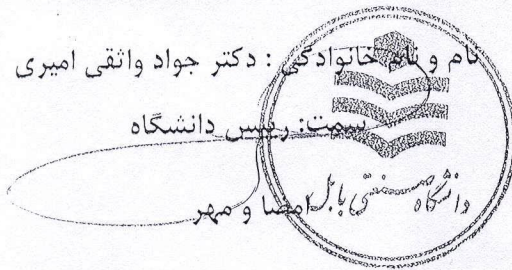 نام و نام خانوادگی : دکتر جواد واثقی امیری
سمت: رییس دانشگاه
امضا و مهر
دانشگاه صنعتی بابل